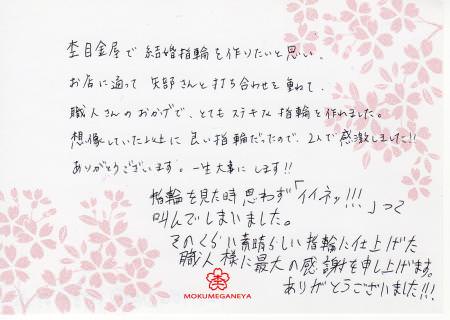 杢目金屋で結婚指輪を作りたいと思い、
お店に通って矢部さんと打ち合わせを重ねて、
職人さんのおかげで、とてもステキな指輪を作れました。
想像していた以上に良い指輪だったので、2人で感激しました!!
ありがとうございます。一生大事にします!!
指輪を見た時思わず「イイネッ!!!」って
叫んでしまいました。
そのくらい素晴らしい指輪に仕上げた
職人様に最大の感謝を申し上げます。
ありがとうございました!!!
MOKUMEGANEYA